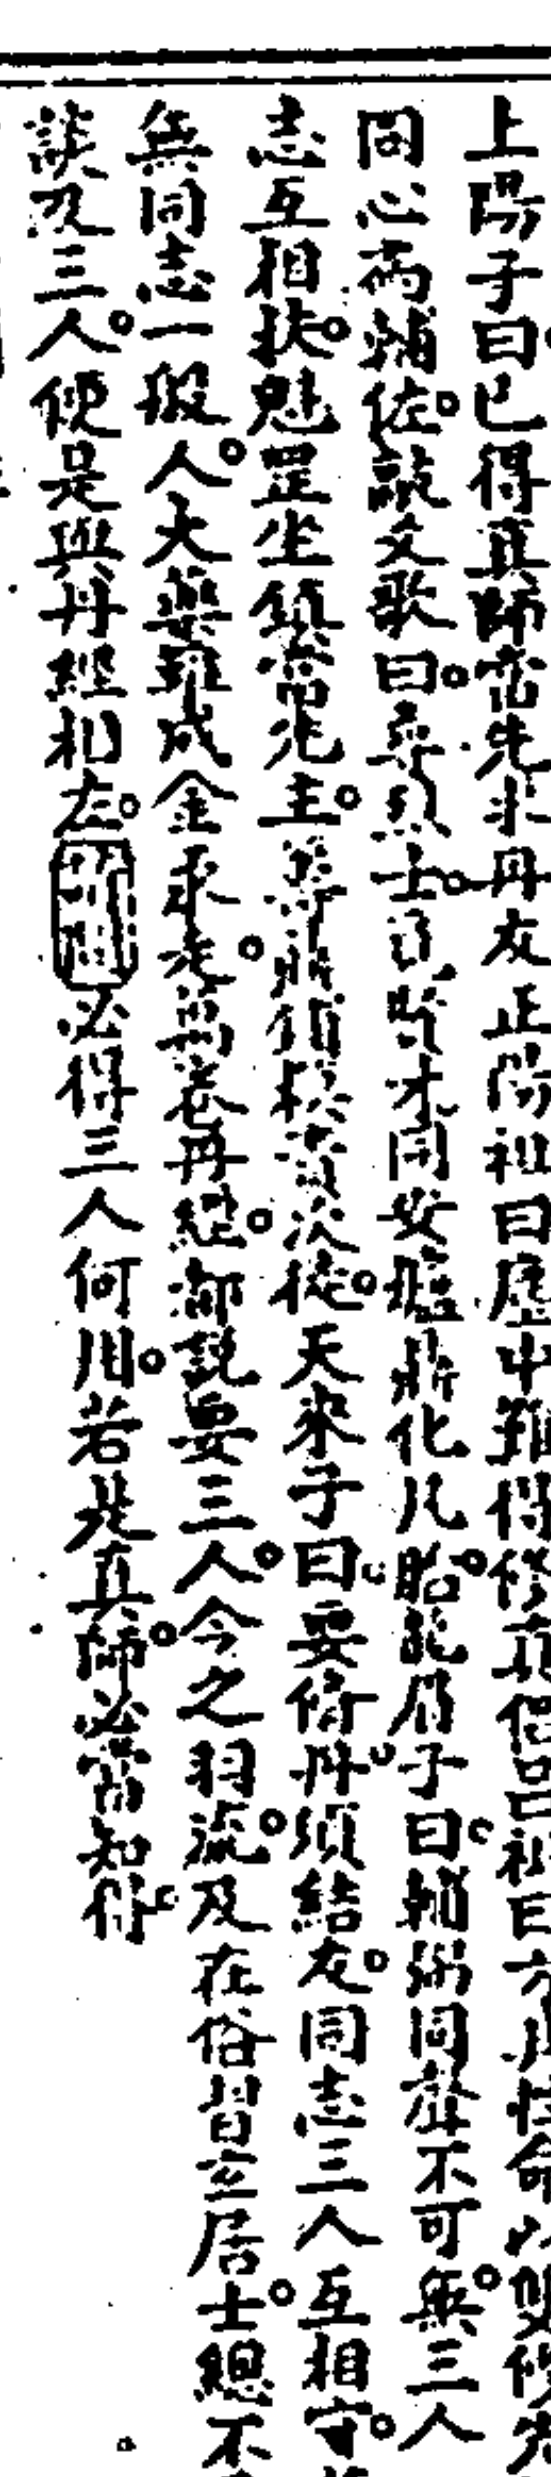 上陽子曰已得真師當先求丹友正陽祖曰塵中難得修真侶呂祖曰方此性命以雙修先
同心兩輔佐。敲爻歌曰。尋烈士。覓賢才同安爐鼎化凡胎。龍眉子曰。輔弼同聲不可無。三人
志互相扶。魁罡坐鎮當先主。 鼎 次從。天來子曰。要修丹。須結友。同志三人互相守。
無同志一般人。大藥難成金汞走。萬卷丹經。都說要三人。今之羽流。及在俗習玄居士。總不
談及三人。便是與丹經相左。或問必得三人何用。若是真師。必當知得。